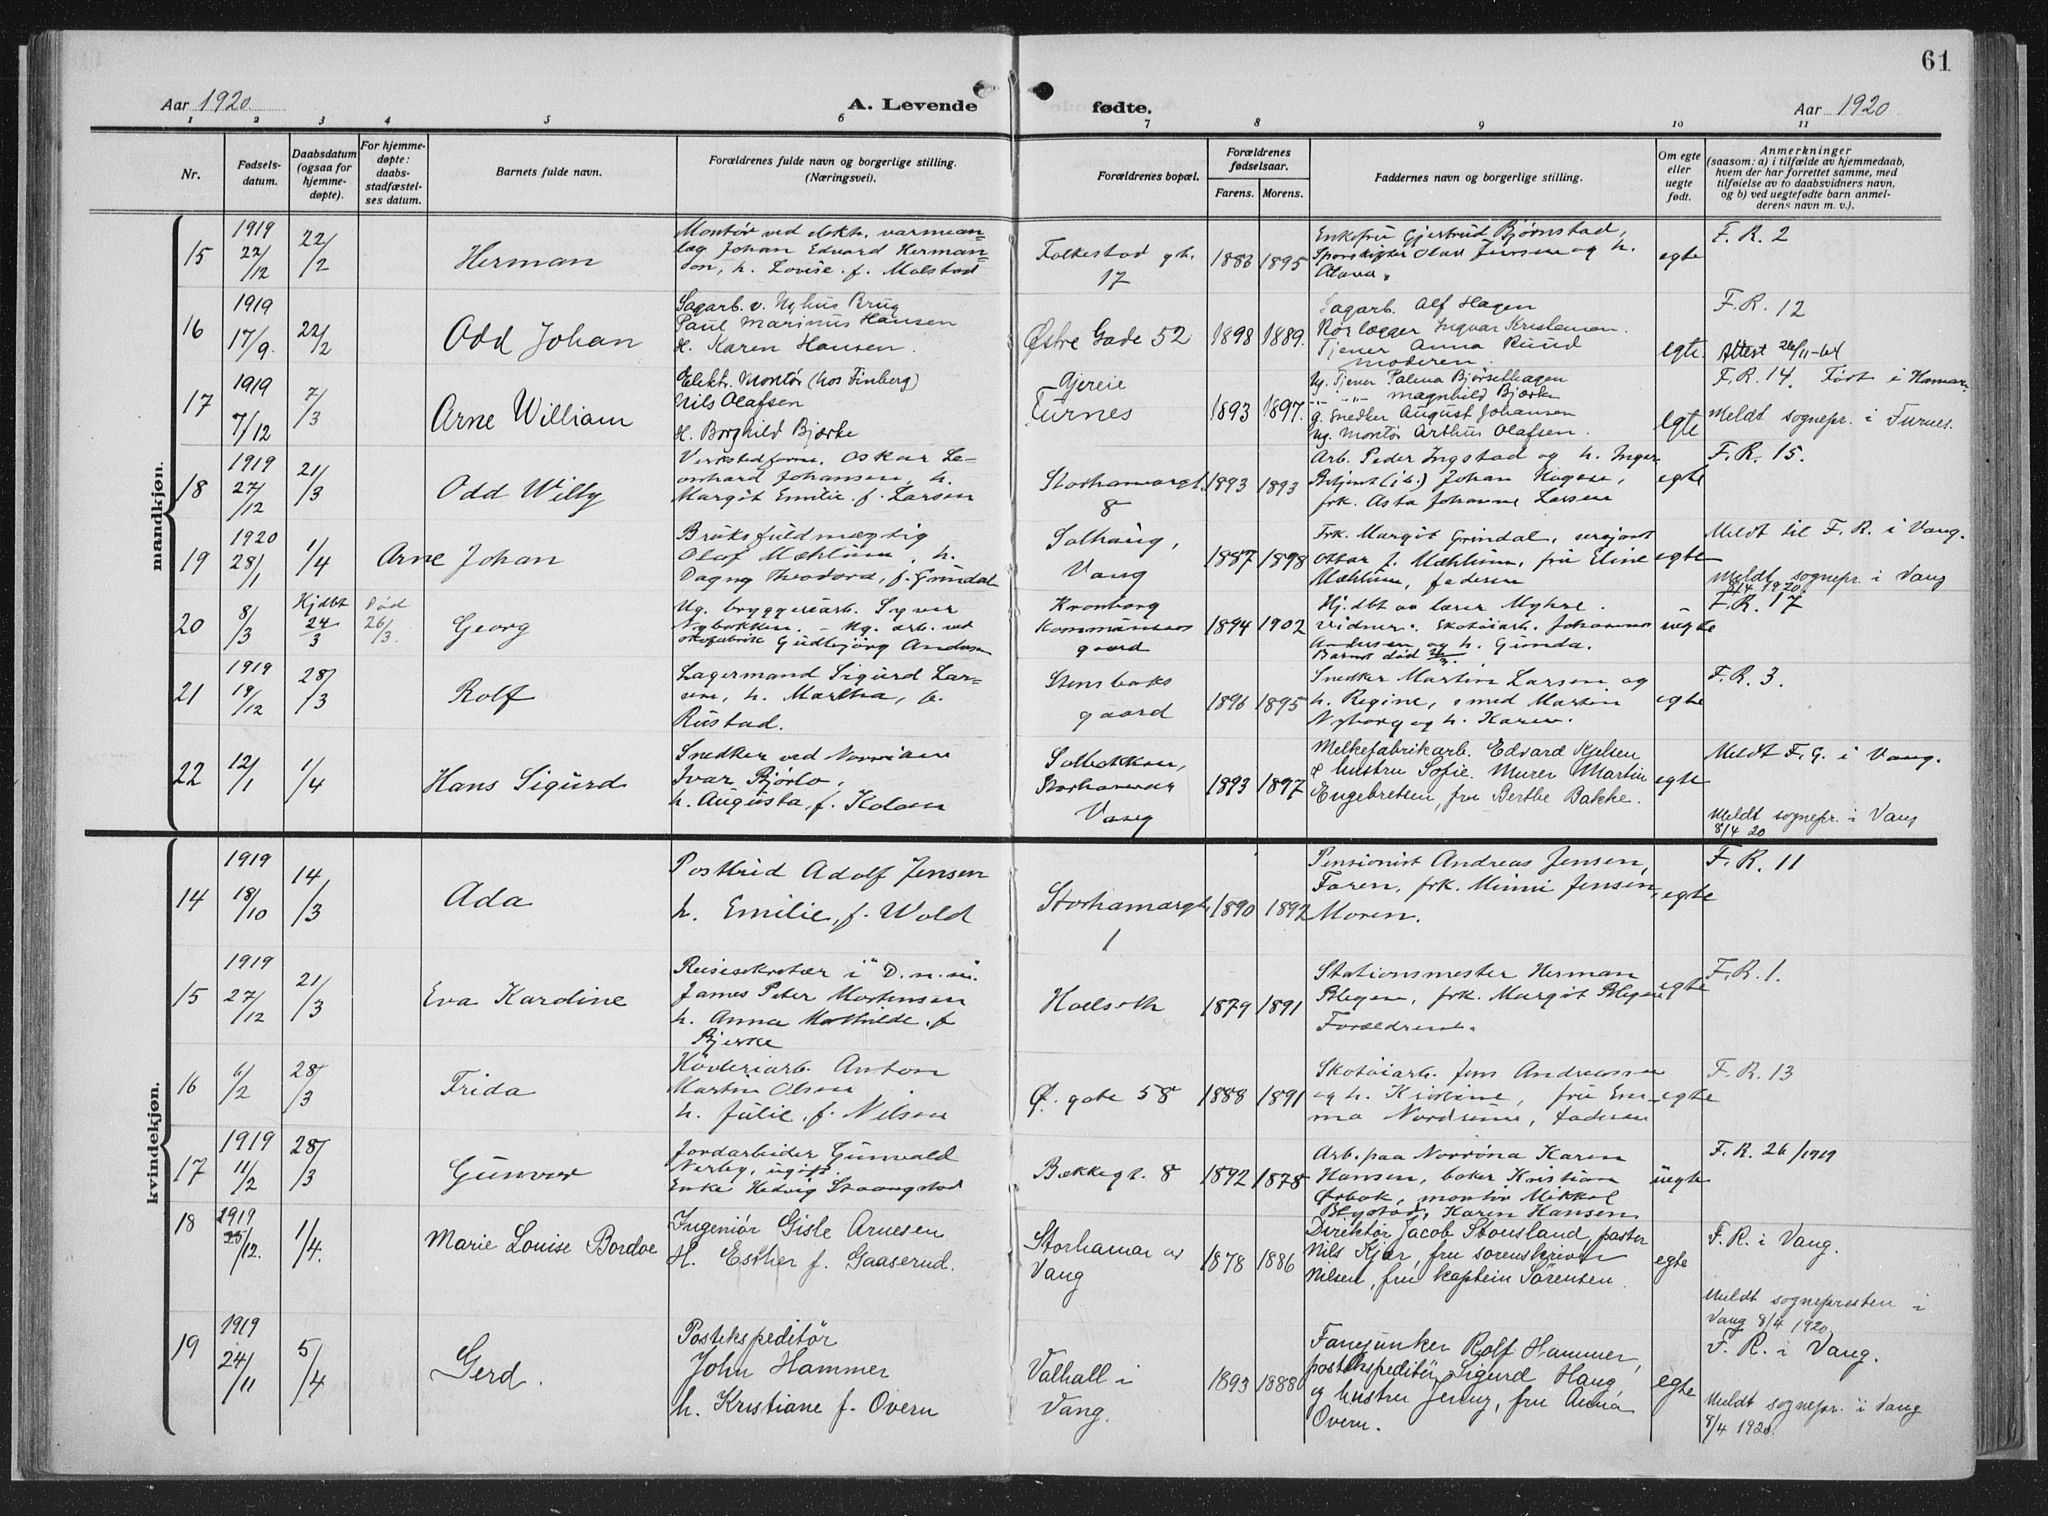 61
Aar 1920
A. Levende
fødte.
Aar 1920
1 2 3 4 5 6 7 8 9 10 11
Nr.
Fødsels-
datum.
Daabsdatum
(ogsaa for
hjemme-
døpte).
For hjemme-
døpte:
daabs-
stadfæstel-
ses datum.
Barnets fulde navn.
Forældrenes fulde navn og borgerlige stilling.
(Næringsvei).
Forældrenes bopæl.
Forældrenes
fødselsaar.
Farens. Morens.
Faddernes navn og borgerlige stilling.
Om egte
eller
uegte
født.
Anmerkninger
(saasom: a) i tilfælde av hjemmedaab,
hvem der har forrettet samme, med
tilføielse av to daabsvidners navn,
og b) ved uegtefødte barn anmel-
derens navn m. v.).
mandkjøn.
15
1919
22/12
22/2
Herman
Montør ved elektr. varmean-
læg Johan Edvard Herman-
sen, h. Lovise f. Molstad
Folkestad gt.
17
1883 1895
Enkefru Gjertrud Bjørnstad,
Olav Jensen og h.
Olava.
egte
F. R. 2
16
1919
17/9.
22/2
Odd Johan
Sagarb. v. Nyhus Brug
Paul Marinus Hansen
H. Karen Hansen.
Østre Gade 52
1898 1889.
Sagarb. Alf Hagen
Rørlægger Ingvar Kristiansen.
Tjener Anna Ruud
Moderen.
egte.
F. R. 12
Attest 26/11-64
17
1919
7/12
7/3
Arne William
Elektr. Montør (hos Finberg)
Nils Olafsen
H. Borghild Bjærke
Furnes
1893 1897.
Ug. Tjener Palma Bjørselhagen
" -"- Magnhild Bjærke
g. Snedker August Johansen
ug. Montør Arthur Olafsen.
egte
F. R. 14. Født i Hamar.
Meldt sognepr. i Furnes.
18
1919
27/12
21/3
Odd Willy
Verkstedform. Oskar Le-
onhard Johansen, h.
Margit Emilie f. Larsen
Storhamargt.
8
1893 1893
Arb. Peder Ingstad og h. Inger
Betjent Johan Hagen,
frk. Asta Johanne Larsen
egte
F. R. 15.
19
1920
28/1
1/4
Arne Johan
Bruksfuldmægtig
Olaf Mæhlum, h.
Dagny Theodora, f. Grindal
Solhaug,
Vang
1887 1898
Frk. Margit Grindal, sersjant
Ottar J. Mæhlum, fru Eline
Mæhlum, faderen
egte
Meldt til F. R. i Vang.
Meldt sognepr. i Vang
8/4 1920.
20
8/3
Hjdbt
24/3
Død
26/3.
Georg
Ug. bryggeriarb. Syver
Nybakken. - Ug. arb. ved
skofabrik Gudbjörg Andersen
Kronborg
Kommunens
gaard
1894 1902
Hj.dbt av lærer Myhre.
Vidner: Skotøiarb. Johannes
Andersen og h. Gunda.
Barnet død 26/3.
uegte
F. R. 17
21
1919
19/12
28/3
Rolf
Lagermand Sigurd Lar-
sen, h. Martha, f.
Rustad.
Stensbaks
gaard
1896 1895
Snedker Martin Larsen og
h. Regine, smed Martin
Nyborg og h. Karen.
egte
F. R. 3.
22
12/1
1/4
Hans Sigurd
Snedker ved Norrøna
Ivar Bjørlo,
h. Augusta, f. Kolom
Solbakken,
Storhamar
Vang
1893 1897
Melkefabrikarb. Edvard Kjelsen
& hustru Sofie. Murer Martin
Engebretsen, fru Berthe Bakke.
egte
Meldt F. G. i Vang.
Meldt sognepr. i Vang
8/4 20
kvindekjøn.
14
1919
18/10
14/3
Ada
Postbud Adolf Jensen
h. Emilie, f. Wold
Storhamargt.
1
1890 1892
Pensionist Andreas Jensen,
Faren, frk. Minni Jensen,
Moren.
egte
F. R. 11
15
1919
27/12
21/3
Eva Karoline
Reisesekretær i "D. n. m."
James Peter Mortensen
h. Anna Mathilde, f.
Bjerke
Hoelseth
1879 1891
Stationsmester Herman
Blegen, frk. Margit Blegen
Forældrene.
egte
F. R. 1.
16
6/2
28/3
Frida
Høvleriarb. Anton
Martin Olsen
h. Julie, f. Nilsen
Ø. gate 58
1888 1891
Skotøiarb. Jens Andreassen
og h. Kristine, fru Em-
ma Nordseime, faderen
egte
F. R. 13
17
1919
11/2
28/3
Gunvor
Jordarbeider Gunvald
Nerby, ugift.
Enke Hedvig Skaugstad
Bekkegt. 8
1892 1878
Arb. paa Norrøna Karen
Hansen, baker Kristian
Ørbæk, montør Mikkel
Blystad, Karen Hansen
uegte
F. R. 26/1919
18
1919
25/12.
1/4.
Marie Louise Bordoe
Ingeniør Gisle Arnesen
H. Esther f. Gaaserud.
Storhamar av
Vang
1878 1886
Direktør Jacob Stousland, pastor
Nils Kjær, fru sorenskriver
Nilsen, fru kaptein Sørensen.
egte
F. R. i Vang.
Meldt sognepresten i
Vang 8/4 1920.
19
1919
24/11
5/4
Gerd.
Postekspeditør
John Hammer
h. Kristiane f. Overn
Valhall i
Vang.
1893 1888
Fanejunker Rolf Hammer,
postekspeditør Sigurd Haug
og hustru Jenny, fru Anna
Overn.
egte
F. R. i Vang.
Meldt sognepr. i Vang
8/4 1920.